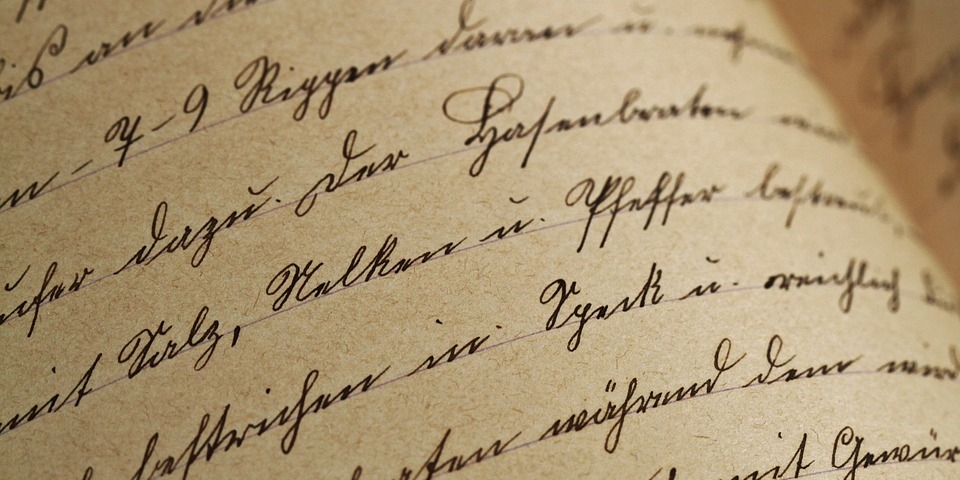 bis an die
n - 7-9 Rippen daran u.
dazu. Der Hasenbraten
mit Salz, Nelken u. Pfeffer bestreut,
bestrichen in Speck u. reichlich
braten während dem wird
mit Gewür